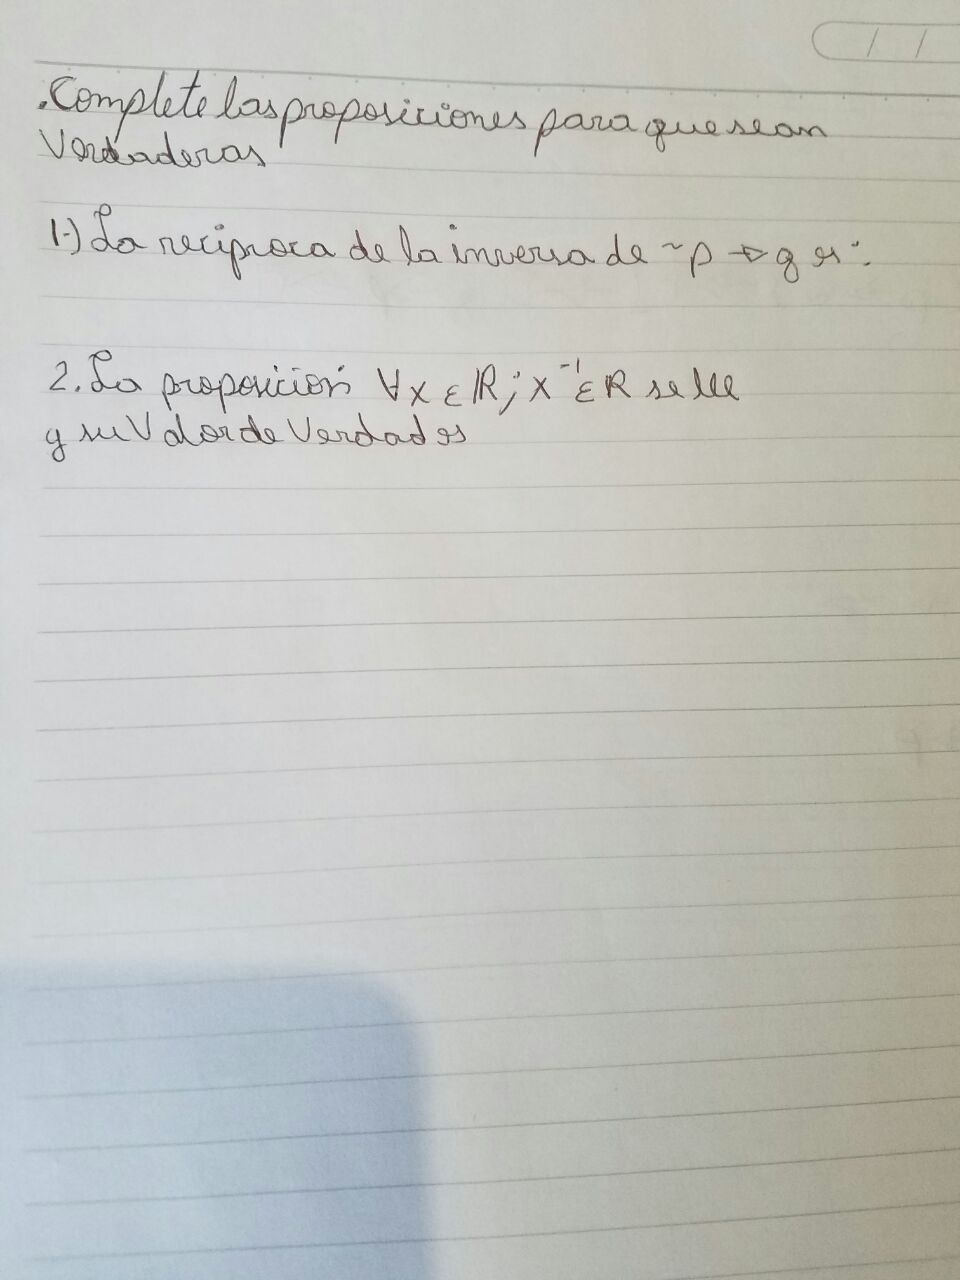 .Complete las proposiciones para que sean
Verdaderas
1.) La reciproca de la inversa de ~p → q es:
2. La proposición ∀x ∈ ℝ; x⁻¹ ∈ R se lee
y su Valor de Verdad es